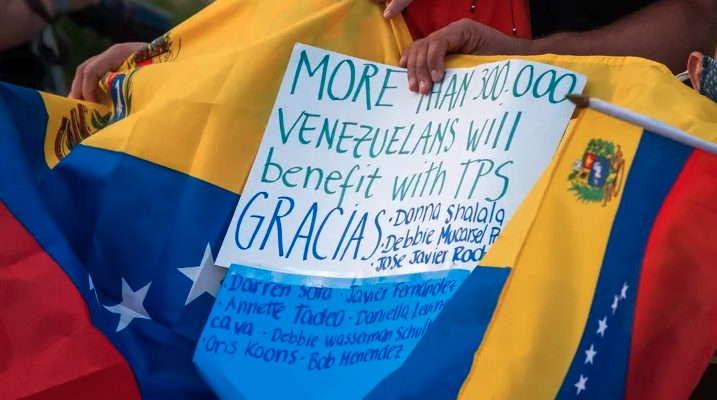 MORE THAN 300.000
VENEZUELANS WILL
benefit with TPS
GRACIAS
· Donna Shalala
· Debbie Mucarsel
· Jose Javier
· Darren Soto · Javier Fernández
· Annette Tadeo · Daniella Levin
cava · Debbie wasserman Schul
· Cris Koons · Bob Menendez